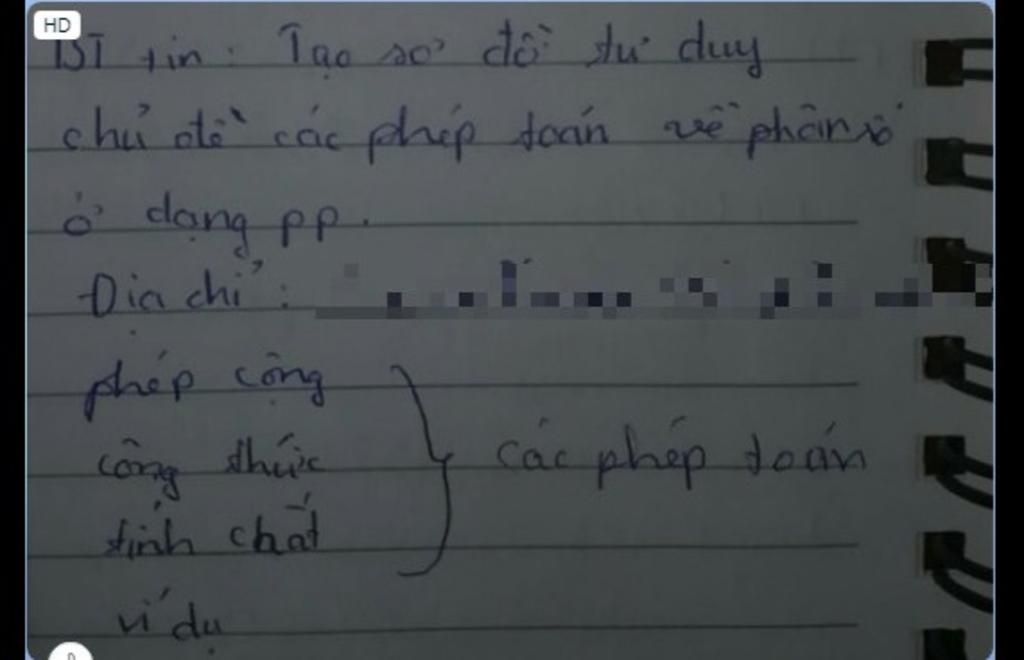 HD
BT tin: Tạo sơ đồ tư duy
chủ đề các phép toán về phân số
ở dạng pp.
Địa chỉ:
phép cộng
công thức } các phép toán
tính chất
ví dụ